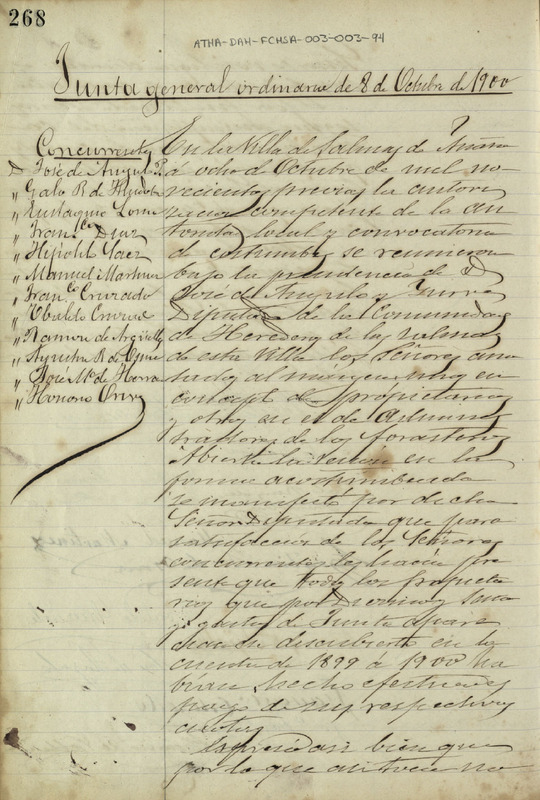 268
ATHA-DAH-FCHSA-003-003-94
Junta general ordinaria de 8 de Octubre de 1900
Concurrentes
D José de Angulo P.
" Galo R de
" Eustaquio
" Franco Diaz
" Hipolito Saez
" Manuel Martinez
" Franco
" Ubaldo
" Ramon de Argüelles
" R de
" José Ma de Herran
" Honorio
En la Villa de Salinas de Añana
á ocho de Octubre de mil no-
vecientos, previas la autori
zacion competente de la au
toridad local y convocatoria
de costumbre se reunieron
bajo la presidencia de D
José de Angulo y
Diputado de la Comunidad
de Herederos de las salinas
de esta Villa los señores ano
tados al márgen, unos en
concepto de propietarios
y otros en el de Adminis
tradores de los forasteros
Abierta la sesion en la
forma acostumbrada
se manifestó por dicho
Señor Diputado que para
satisfaccion de los Señores
concurrentes les hacia pre
sente que todos los propieta
rios que por
y gastos de Junta apare
cian en descubierto en la
cuenta de 1899 á 1900 ha
bian hecho efectivo el
pago de sus respectivas
cuotas
bien que
por lo que no